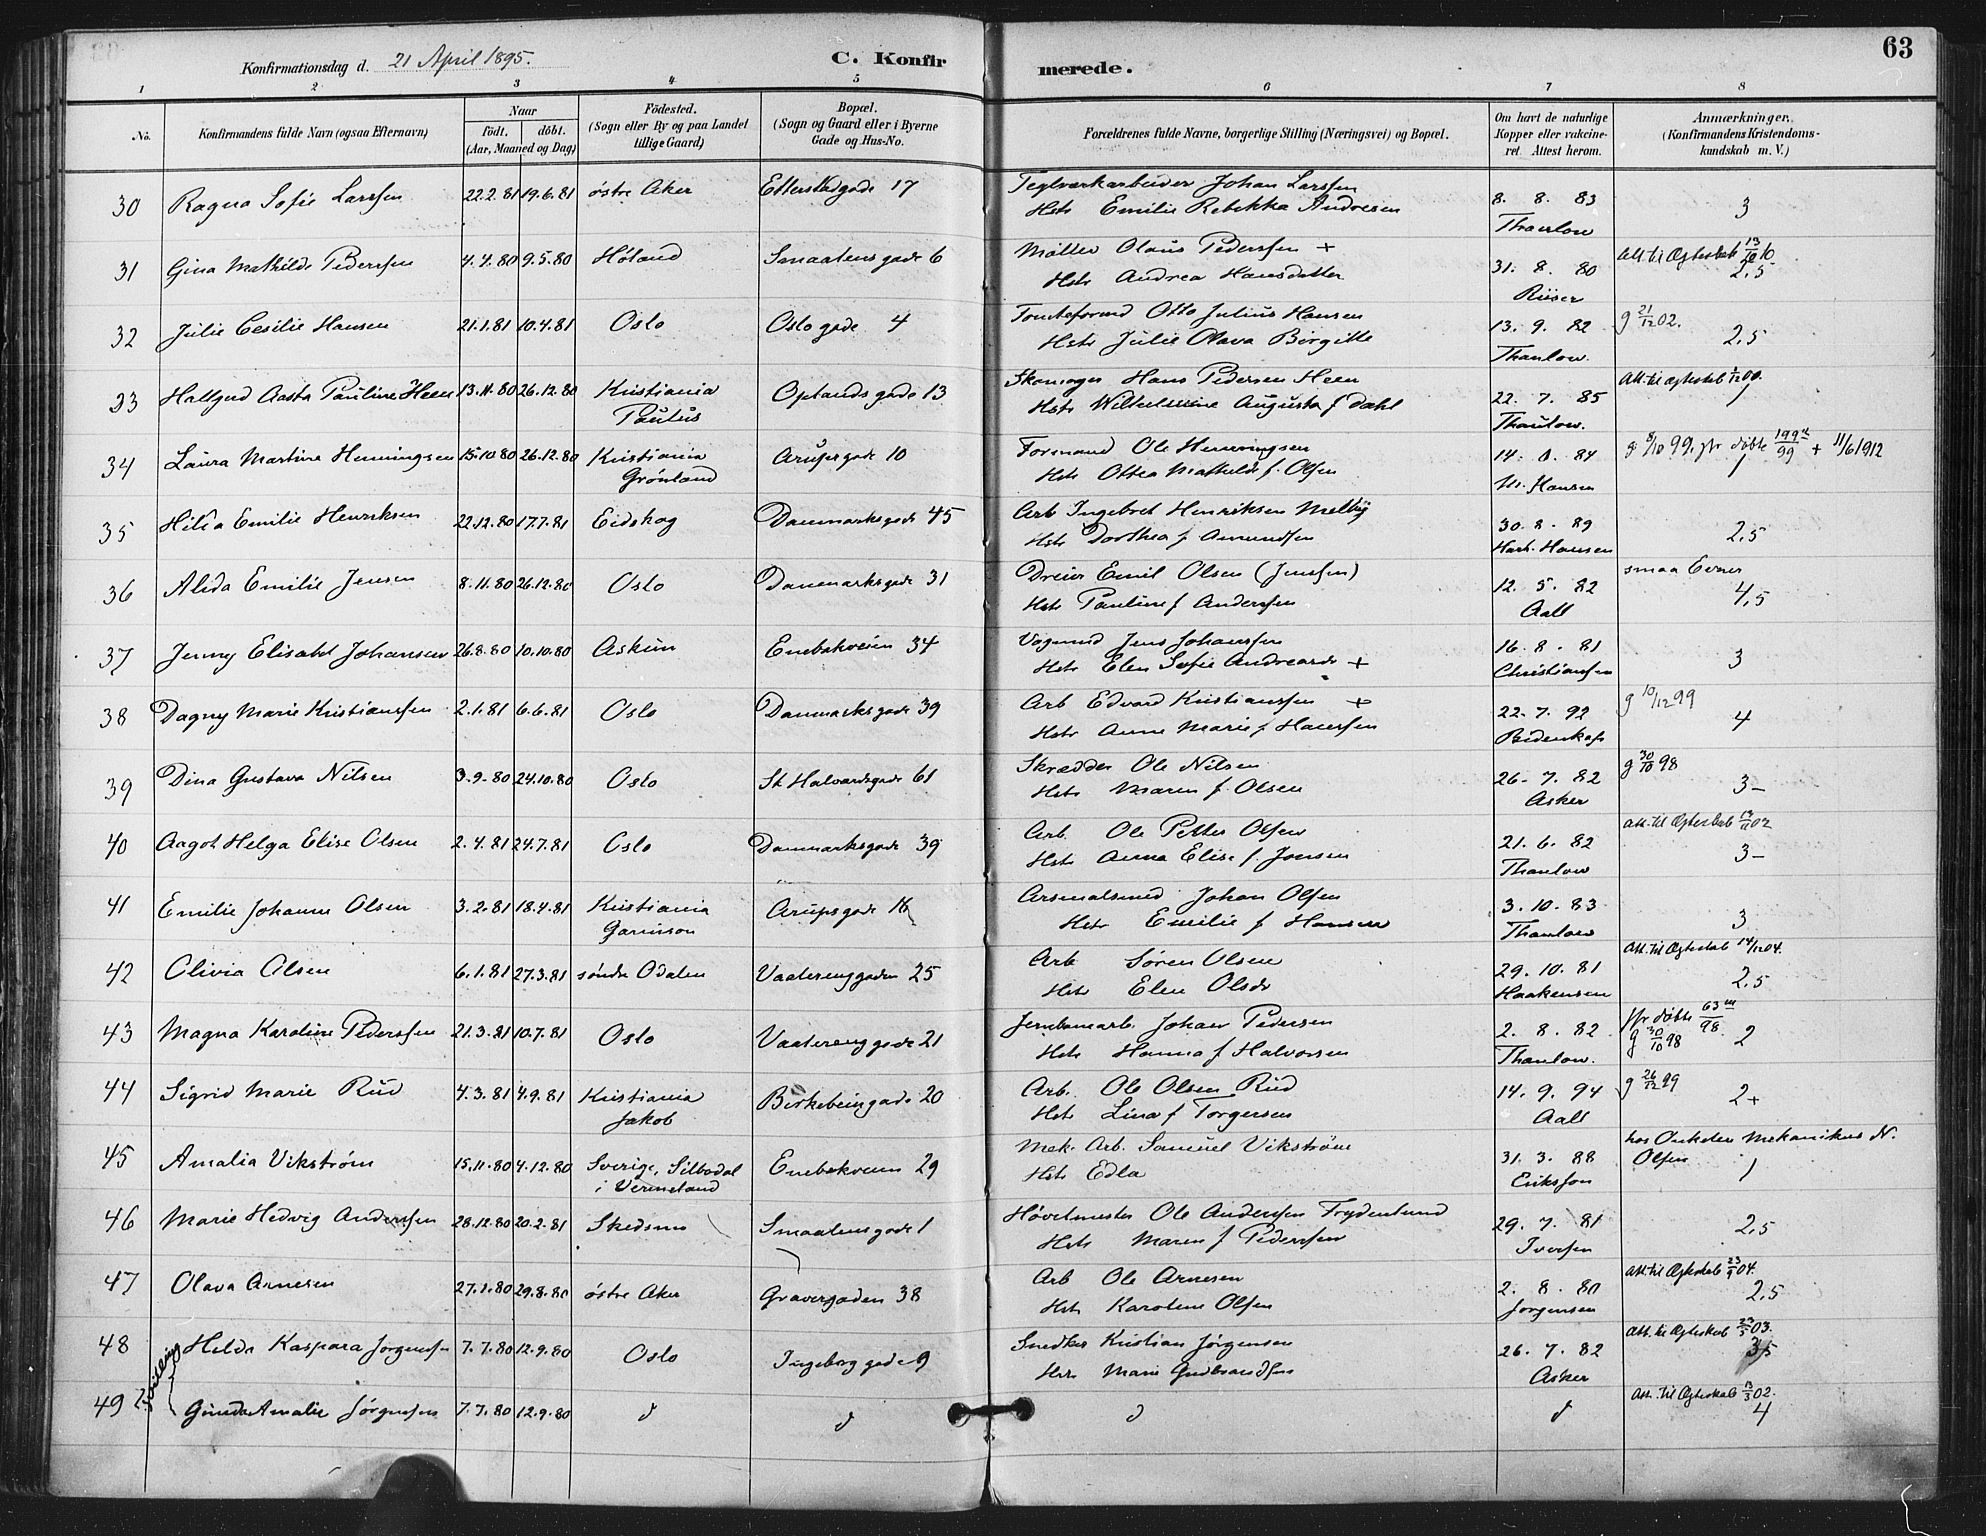 63
Konfirmationsdag d. 21 April 1895. C. Konfirmerede.
1 2 3 4 5 6 7 8
No. Konfirmandens fulde Navn (ogsaa Efternavn) Naar født. døbt. (Aar, Maaned og Dag) Födested. (Sogn eller By og paa Landet tillige Gaard) Bopæl. (Sogn og Gaard eller i Byerne Gade og Hus-No. Forældrenes fulde Navne, borgerlige Stilling (Næringsvei) og Bopæl. Om havt de naturlige Kopper eller vakcineret. Attest herom. Anmærkninger. (Konfirmandens Kristendomskundskab m. V.)
30 Ragna Sofie Larssen 22.2.81 19.6.81 østre Aker Etterstadgade 17 Teglværkarbeider Johan Larssen 8. 8. 83
Hstr Emilie Rebekka Andresen Thaulow 3
31 Gina Mathilde Pederssen 4.4.80 9.5.80 Høland Smaalensgade 6 Møller Olaus Pederssen + 31. 8. 80 Att. til Ægteskab 13/10 10.
Hstr Andrea Hansdatter Riiser 2,5
32 Julie Cesilie Hansen 21.1.81 10.4.81 Oslo Oslo gade 4 Tomteformd Otto Julius Hansen 13. 9. 82 g 21/12 02.
Hstr Julie Olava Birgitte Thaulow. 2,5
33 Hallgerd Aasta Pauline Heen 13.11.80 26.12.80 Kristiania Paulus Oplandsgade 13 Skomager Hans Pedersen Heen 22. 7. 85 Att. til Ægteskab 1/12 00.
Hstr Wilhelmine Augusta f. Dahl Thaulow. 1
34 Laura Martine Henningsen 15.10.80 26.12.80 Kristiania Grønland Arupsgade 10 Formand Ole Henningsen 14. 8. 84 g 8/10 99, jfr døbte 199 n/99 + 11/6 1912
Hstr Ottea Mathilde f. Olsen M. Hansen 1
35 Hilda Emilie Henriksen 22.12.80 17.7.81 Eidskog Danmarksgade 45 Arb Ingebret Henriksen Melby 30. 8. 89
Hstr Dorthea f. Amundsen Hansen 2,5
36 Alida Emilie Jensen 8.11.80 26.12.80 Oslo Danmarksgade 31 Dreier Emil Olsen (Jenssen) 12. 5. 82 smaa Evner
Hstr Pauline f Anderssen Aall 4,5
37 Jenny Elisabet Johansen 26.8.80 10.10.80 Askim Enebakveien 34 Vognmd Jens Johanssen 16. 8. 81
Hstr Elen Sofie Andreasdr + Christianssen 3
38 Dagny Marie Kristianssen 2.1.81 6.6.81 Oslo Danmarksgade 39 Arb Edvard Kristianssen + 22. 7. 92 g 10/12 99
Hstr Anne Marie f Hanssen Bidenkap 4
39 Dina Gustava Nilsen 3.9.80 24.10.80 Oslo St Halvardsgade 61 Skrædder Ole Nilsen 26. 7. 82 g 30/10 98
Hstr Maren f. Olsen Asker 3–
40 Aagot Helga Elise Olsen 2.4.81 24.7.81 Oslo Danmarksgade 39 Arb. Ole Petter Olsen 21. 6. 82 Att. til Ægteskab 02
Hstr Anna Elise f. Jonsen Thaulow 3–
41 Emilie Johanne Olsen 3.2.81 18.4.81 Kristiania Garnison Arupsgade 16 Arsenalsmed Johan Olsen 3. 10. 83
Hstr Emilie f Hansen Thaulow 3
42 Olivia Olsen 6.1.81 27.3.81 søndre Odalen Vaalerenggaden 25 Arb Søren Olsen 29. 10. 81 Att. til Ægteskab 14/12 04.
Hstr Elen Olsdr Haakensen 2,5
43 Magna Karoline Pederssen 21.3.81 10.7.81 Oslo Vaalerenggade 21 Jernbanearb. Johan Pedersen 2. 8. 82 jfr døbte 63 m/98
Hstr Hanna f Halvorsen Thaulow. g 30/10 98 2
44 Sigrid Marie Rud 4.3.81 4.9.81 Kristiania Jakob Birkebeingade 20 Arb. Ole Olsen Rud 14. 9. 94 g 26/12 99
Hstr Lina f Torgersen Aall 2+
45 Amalia Vikstrøm 15.11.80 4.12.80 Sverige, Silbodal i Vermeland Enebakveien 29 Mek. Arb. Samuel Vikstrøm 31. 3. 88 hos Onkelen Mekanikus N.
Hstr Edla Eriksson Olsen 1
46 Marie Hedvig Anderssen 28.12.80 20.2.81 Skedsmo Smaalensgade 1 Høvelmester Ole Anderssen Frydenlund 29. 7. 81
Hstr Maren f Pederssen Iversen 2,5
47 Olava Arnesen 27.1.80 29.8.80 østre Aker Gravergaden 38 Arb Ole Arnesen 2. 8. 80 Att. til Ægteskab 23/9 04.
Hstr Karoline Olsen Jørgensen 2,5
48 Tvilling Helda Kaspara Jørgensen 7.7.80 12.9.80 Oslo Ingeborg gade 9 Snedker Kristian Jørgensen 26. 7. 82 Att. til Ægteskab 03.
Hstr Marie Gudbrandsen Asker 3,5
49 Gunda Amalie Jørgensen 7.7.80 12.9.80 d d d d Att. til Ægteskab 13/3 02.
4